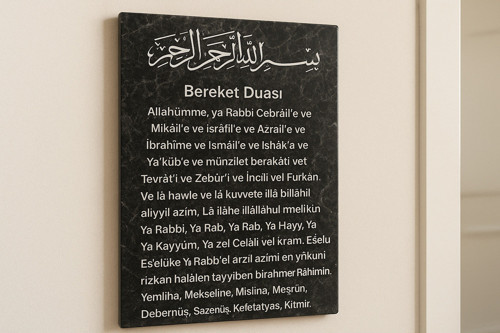 بسم الله الرحمن الرحيم
Bereket Duası
Allahümme, ya Rabbi Cebrâil'e ve
Mikâil'e ve isrâfil'e ve Azrail'e ve
İbrahîme ve Ismâil'e ve Ishâk'a ve
Ya'kûb'e ve münzilet berakâti vet
Tevrât'i ve Zebûr'i ve İncîli vel Furkân.
Ve lâ hawle ve lâ kuvvete illâ billâhil
aliyyil azîm, Lâ ilâhe illâllâhul melikin
Ya Rabbi, Ya Rab, Ya Rab, Ya Hayy, Ya
Ya Kayyûm, Ya zel Celâli vel kram. Eşelu
Es'elüke Ya Rabb'el arzil azîmi en yñkuni
rizkan halâlen tayyiben birahmer Râhimin.
Yemliha, Mekseline, Mislina, Meşrün,
Debernüş, Sazenüş, Kefetatyas, Kitmir.